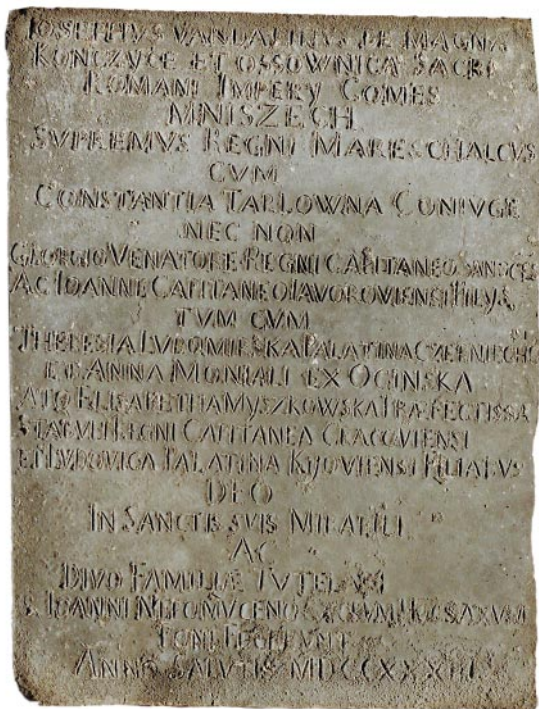 IOSEPHVS VANDALINVS DE MAGNA
KONCZYCE ET OSSOWNICA SACRI
ROMANI IMPERY COMES
MNISZECH
SVPREMVS REGNI MARESCHALCVS
CVM
CONSTANTIA TARLOWNA CONIVGE
NEC NON
GEORGIO VENATORE REGNI CAPITANEO SANOCES
AC IOANNE CAPITANEO IAVOROVIENSI FILYS
TVM CVM
THERESIA LVBOMIRSKA PALATINA CZERNIECHO
ET ANNA MONIALI EX OCINSKA
ATQ ELISABETHA MYSZKOWSKA PRÆFECTISSA
STABVLI REGNI CAPITANEA CRACOVIENSI
ET LVDOVICA PALATINA KIJOVIENSI FILIABVS
DEO
IN SANCTIS SVIS MIRABILI
AC
DIVO FAMILIÆ TVTELARI
S. IOANNI NEPOMVCENO SAXVM
PONI FECERVNT
ANNO SALVTIS MDCCXXXIII